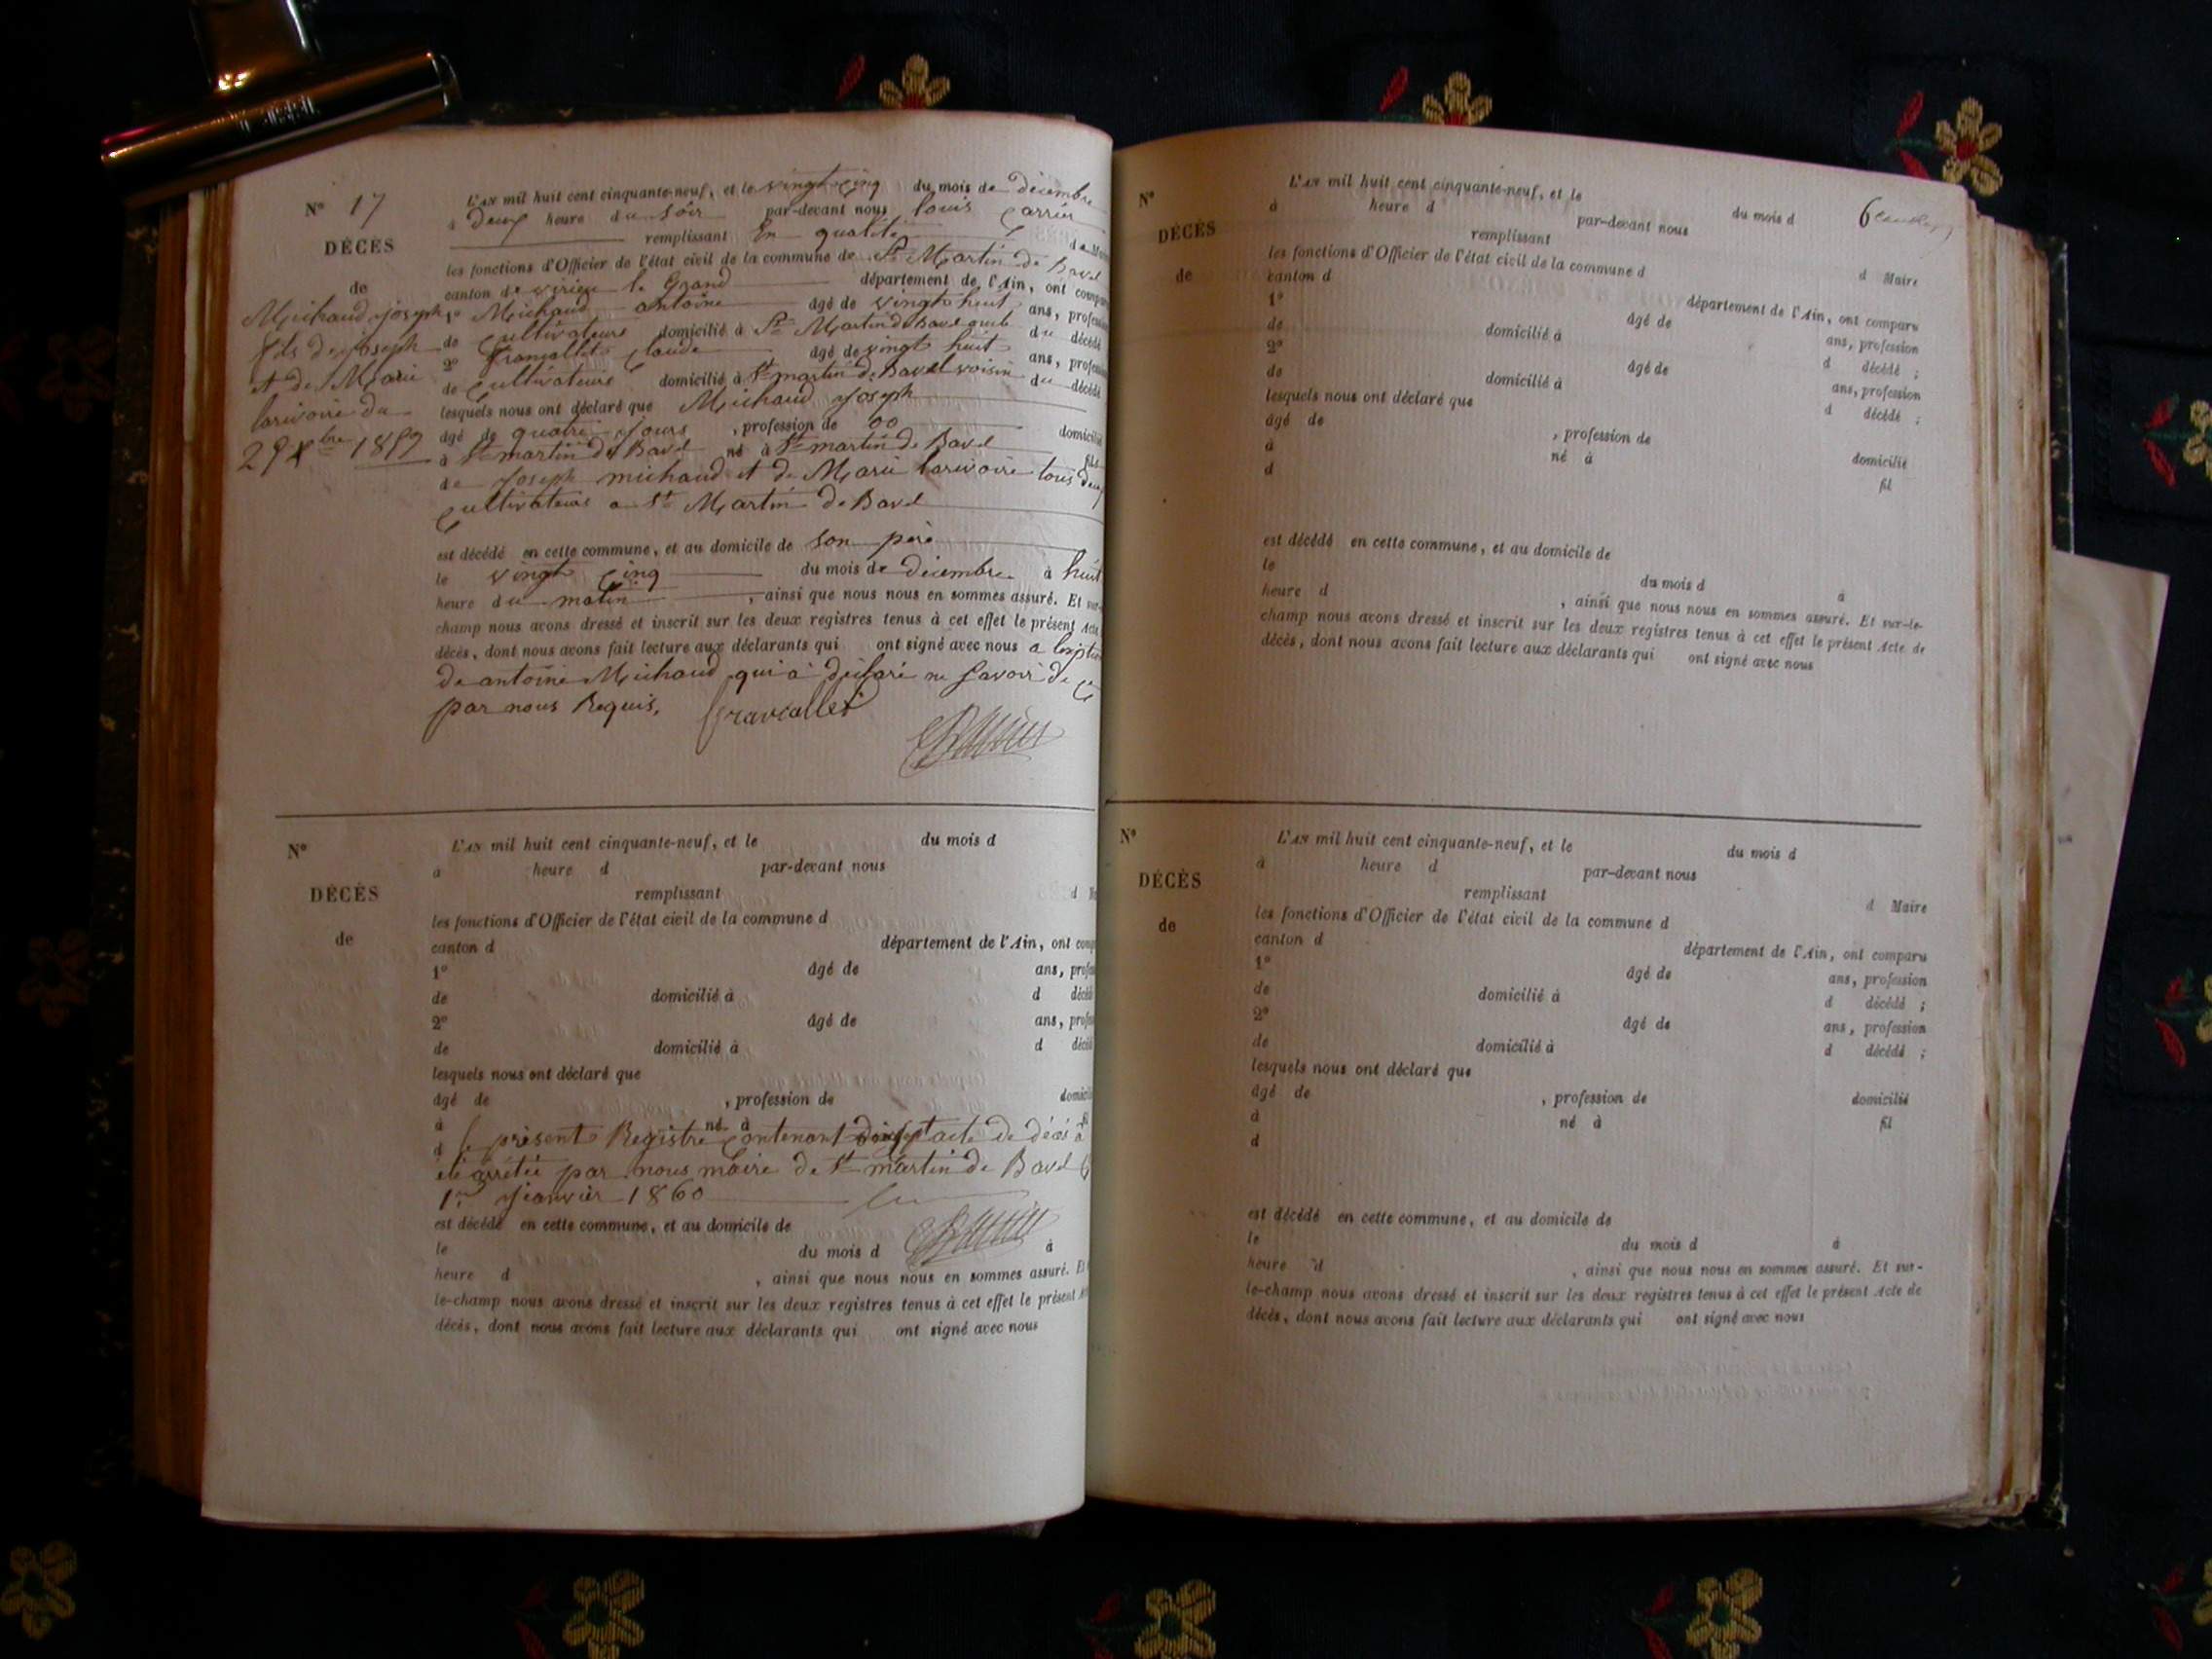 N° 17
DÉCÈS
de
Michaud joseph
fils de joseph
et de Marie
larivoire du
25 Xbre 1859
L'AN mil huit cent cinquante-neuf, et le vingt cinq du mois de décembre
à deux heure du soir par-devant nous louis Carrier
remplissant En qualité de
les fonctions d'Officier de l'état civil de la commune de St Martin de Bavel
canton de virieu le Grand département de l'Ain, ont comparu
1° Michaud antoine âgé de vingt huit ans, profession
de Cultivateur domicilié à St Martin de Bavel du décédé
2° Francallet Claude âgé de vingt huit ans, profession
de Cultivateur domicilié à St martin de Bavel voisin du décédé
lesquels nous ont déclaré que Michaud Joseph
âgé de quatre Jours , profession de 00 domicilié
à St martin de Bavel né à St martin de Bavel fils
de Joseph michaud et de Marie larivoire tous deux
Cultivateurs a St Martin de Bavel
est décédé en cette commune, et au domicile de son père
le vingt Cinq du mois de décembre à huit
heure du matin , ainsi que nous nous en sommes assuré. Et sur-
champ nous avons dressé et inscrit sur les deux registres tenus à cet effet le présent Acte
décès, dont nous avons fait lecture aux déclarants qui ont signé avec nous a
de antoine Michaud qui à déclaré ne Savoir de Ce
par nous Requis, francallet
N°
DÉCÈS
de
L'AN mil huit cent cinquante-neuf, et le du mois d
à heure d par-devant nous
remplissant d
les fonctions d'Officier de l'état civil de la commune d
canton d département de l'Ain, ont
1° âgé de ans,
de domicilié à d
2° âgé de ans,
de domicilié à d
lesquels nous ont déclaré que
âgé de , profession de
à né à
d le présent Registre Contenant dixsept acte de décès à
été arrêtée par nous maire de St martin de Bavel le
1er Janvier 1860
est décédé en cette commune, et au domicile de
le du mois d à
heure d , ainsi que nous nous en sommes assuré. Et
le-champ nous avons dressé et inscrit sur les deux registres tenus à cet effet le présent
décès, dont nous avons fait lecture aux déclarants qui ont signé avec nous
6
N°
DÉCÈS
de
L'AN mil huit cent cinquante-neuf, et le du mois d
à heure d par-devant nous
remplissant d Maire
les fonctions d'Officier de l'état civil de la commune d
canton d département de l'Ain, ont comparu
1° âgé de ans, profession
de domicilié à d décédé ;
2° âgé de ans, profession
de domicilié à d décédé ;
lesquels nous ont déclaré que
âgé de , profession de domicilié
à né à fil
d
est décédé en cette commune, et au domicile de
le du mois d à
heure d , ainsi que nous nous en sommes assuré. Et sur-le-
champ nous avons dressé et inscrit sur les deux registres tenus à cet effet le présent Acte de
décès, dont nous avons fait lecture aux déclarants qui ont signé avec nous
N°
DÉCÈS
de
L'AN mil huit cent cinquante-neuf, et le du mois d
à heure d par-devant nous
remplissant d Maire
les fonctions d'Officier de l'état civil de la commune d
canton d département de l'Ain, ont comparu
1° âgé de ans, profession
de domicilié à d décédé ;
2° âgé de ans, profession
de domicilié à d décédé ;
lesquels nous ont déclaré que
âgé de , profession de domicilié
à né à fil
d
est décédé en cette commune, et au domicile de
le du mois d à
heure d , ainsi que nous nous en sommes assuré. Et sur-
le-champ nous avons dressé et inscrit sur les deux registres tenus à cet effet le présent Acte de
décès, dont nous avons fait lecture aux déclarants qui ont signé avec nous